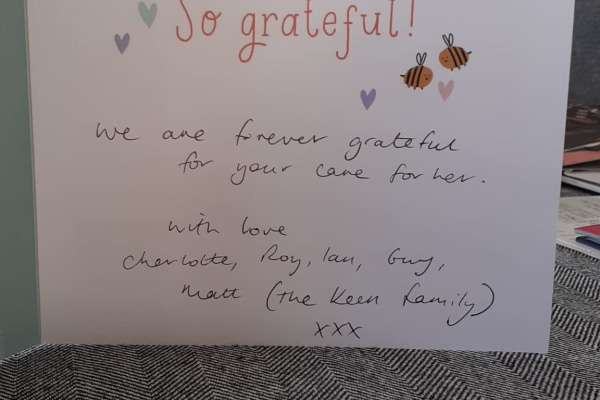 So grateful!
We are forever grateful
for your care for her.
With love
Charlotte, Roy, Ian, Guy,
Matt (The Keen family)
xxx